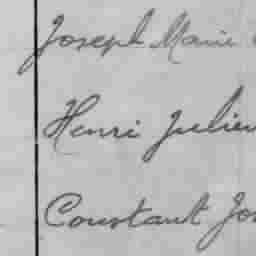 Joseph Marie
Henri Julien
Constant Jos